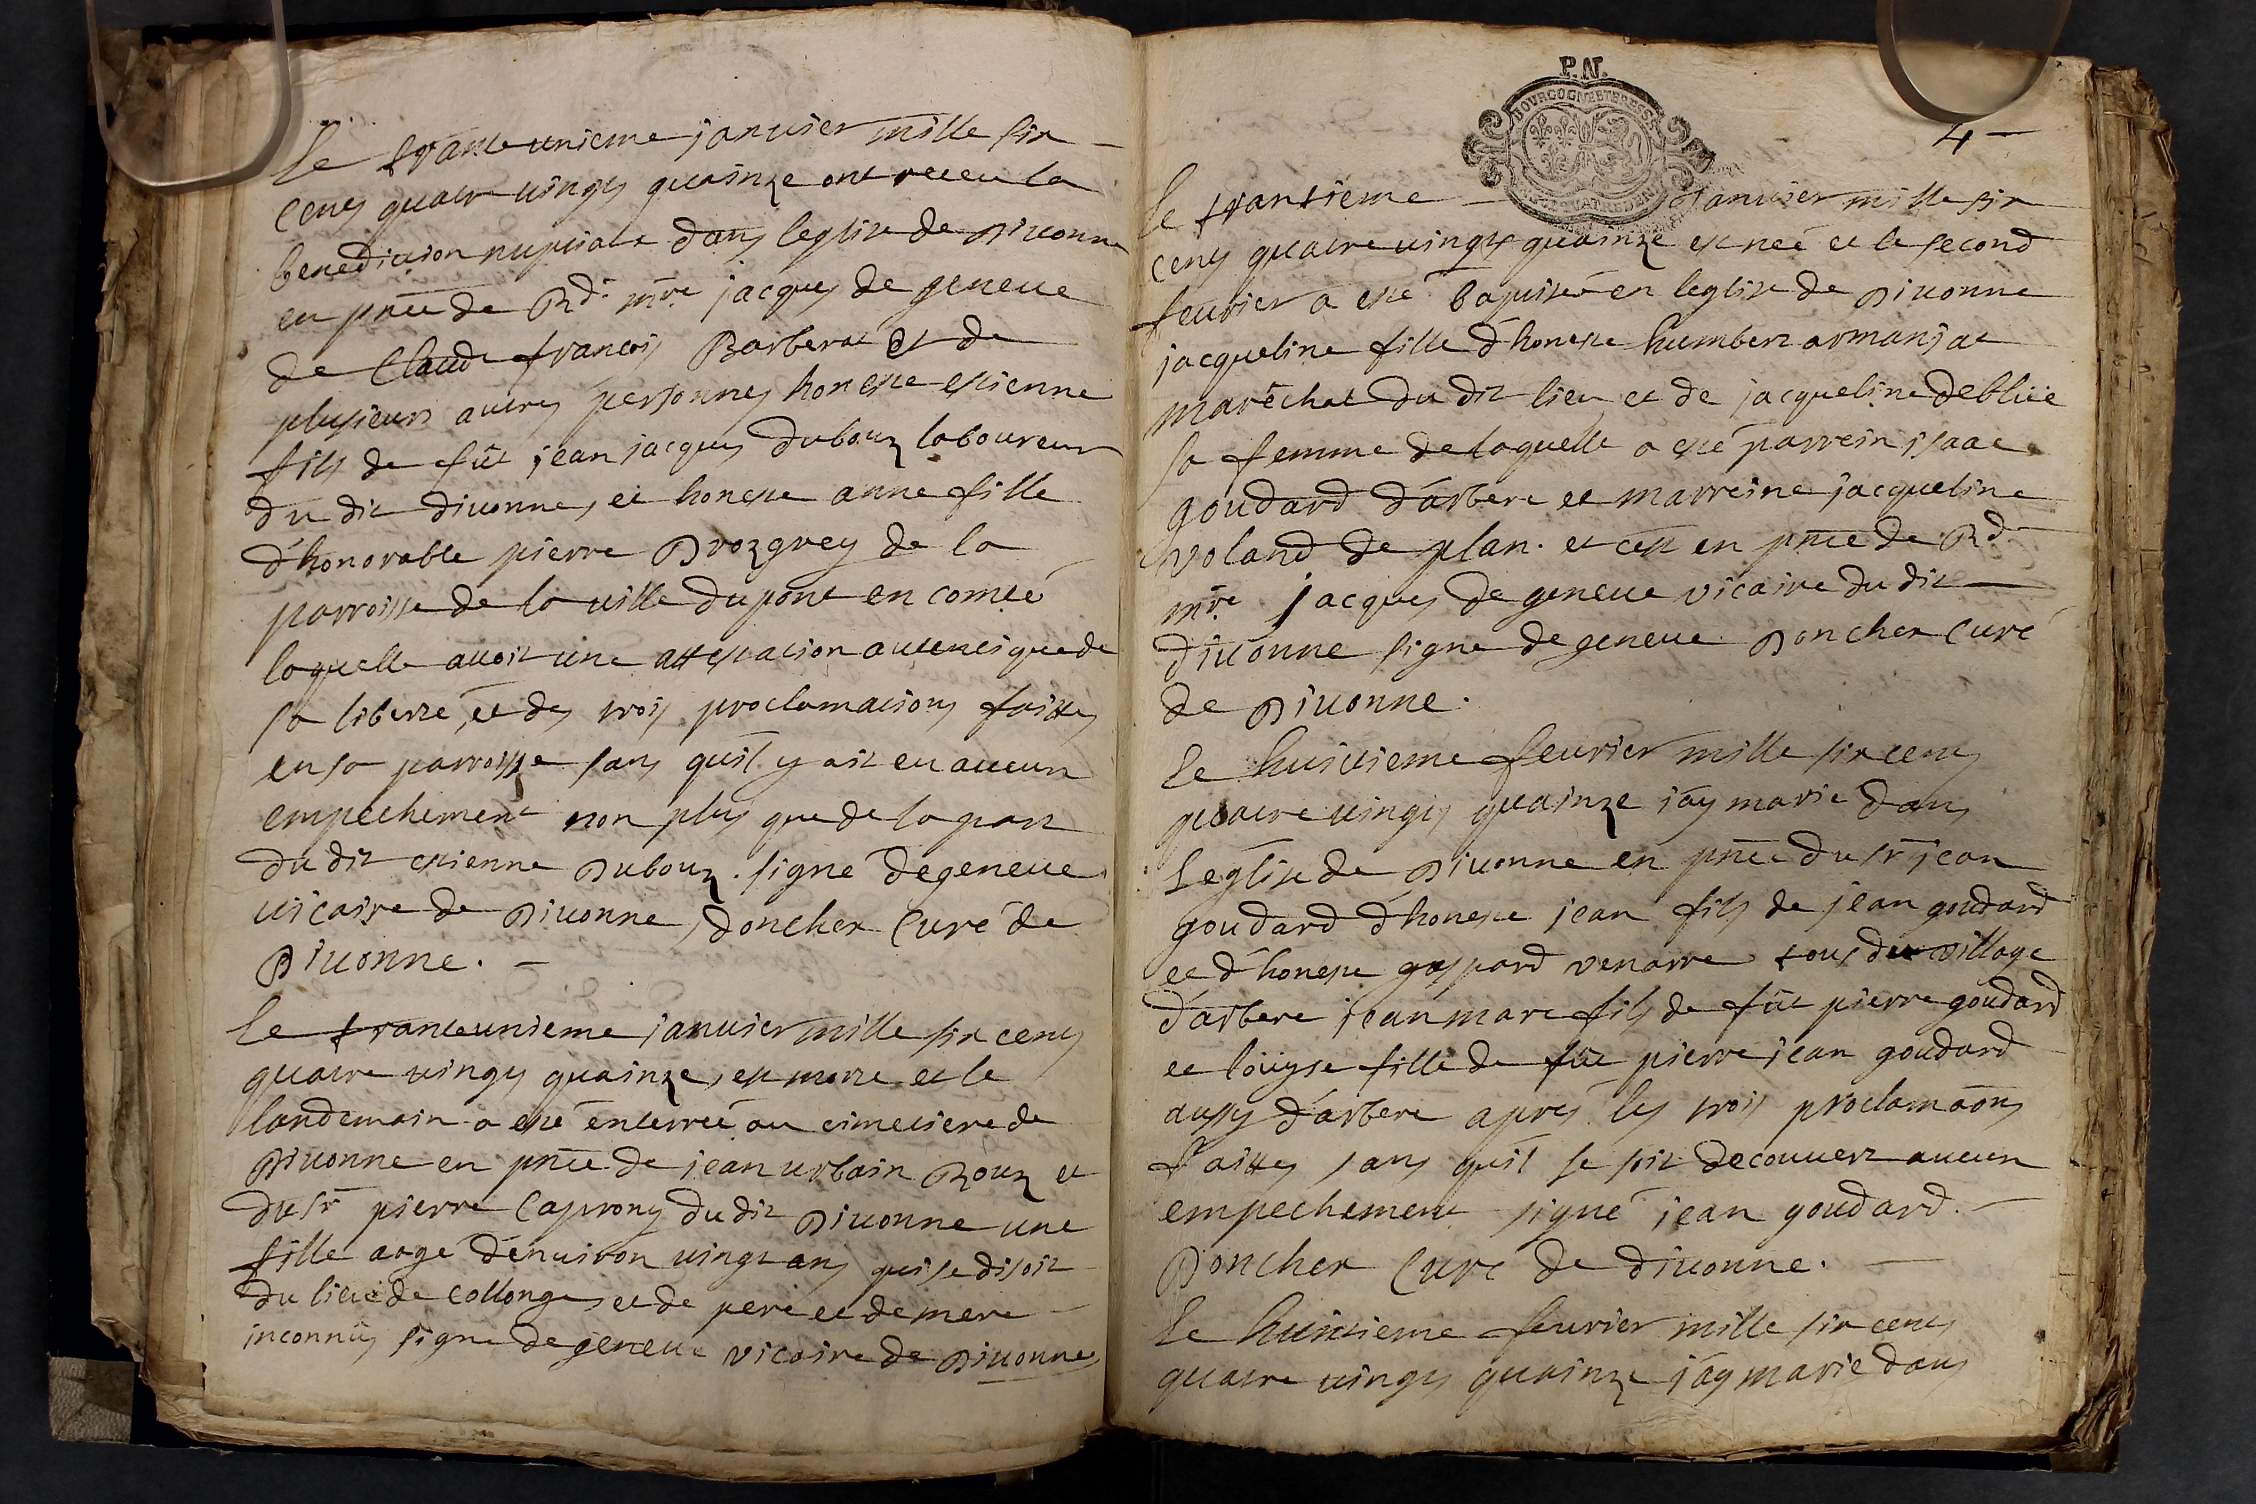 Le tranteunieme januier mille six
cens quatre vingts quainze ont receu la
benediction nuptiale dans leglise de Diuonne
en pnce de Rd. mre jacques de geneue
de Claude francois Barberat et de
plusieurs autres personnes honeste estienne
fils de fût jean jacques dubouz laboureur
du dit diuonne, et honeste anne fille
d'honorable pierre Brozgrey de la
parroisse de la ville dupont en comté
laquelle auoit une attestation autentique de
sa liberté, et des trois proclamations faittes
en sa parroisse sans quil y ait eu aucun
empechement non plus que de la part
du dit estienne Dubouz. signé degeneue
uicaire de Diuonne, doncher Curé de
Diuonne.
Le tranteunieme januier mille six cens
quatre vingts quainze, est morte et le
landemain a esté enterreé au cimetiere de
Diuonne en pnce de jean urbain Rouz et
du sr pierre Caprony du dit Diuonne une
fille aagé denuiron vingt ans qui se disoit
du lieu de Collonges et de pere et de mere
inconnus signé degeneue vicaire de Diuonne
P.N.
BOURGOGNE ET BRESSE
4
Le trantieme Januier mille six
cens quatre vingts quainze est neé et le second
feurier a esté baptiseé en leglise de Diuonne
jacqueline fille d'honeste humbert armanjat
maréchal du dit lieu et de jacqueline deblüe
sa femme de laquelle a esté parrein isaac
goudard d'arbere et marreine jacqueline
voland de plan. et cest en pnce de Rd.
mre. jacques de geneue vicaire du dit
diuonne signé degeneue Doncher Curé
de Diuonne.
Le huitieme feurier mille six cens
quatre vingts quainze jay marié dans
Leglise de Diuonne en pnce du sr jean
goudard d'honeste jean fils de jean goudard
et d'honeste gaspard venarre tous du village
d'arbere jean marc fils de fût pierre goudard
et loüyse fille de fût pierre jean goudard
aussy d'arbere apres les trois proclamaons
faittes sans quil se soit decouuert aucun
empechement signé jean goudard.
Doncher Curé de diuonne.
Le huitieme feurier mille six cens
quatre vingts quainze jáy marié dans